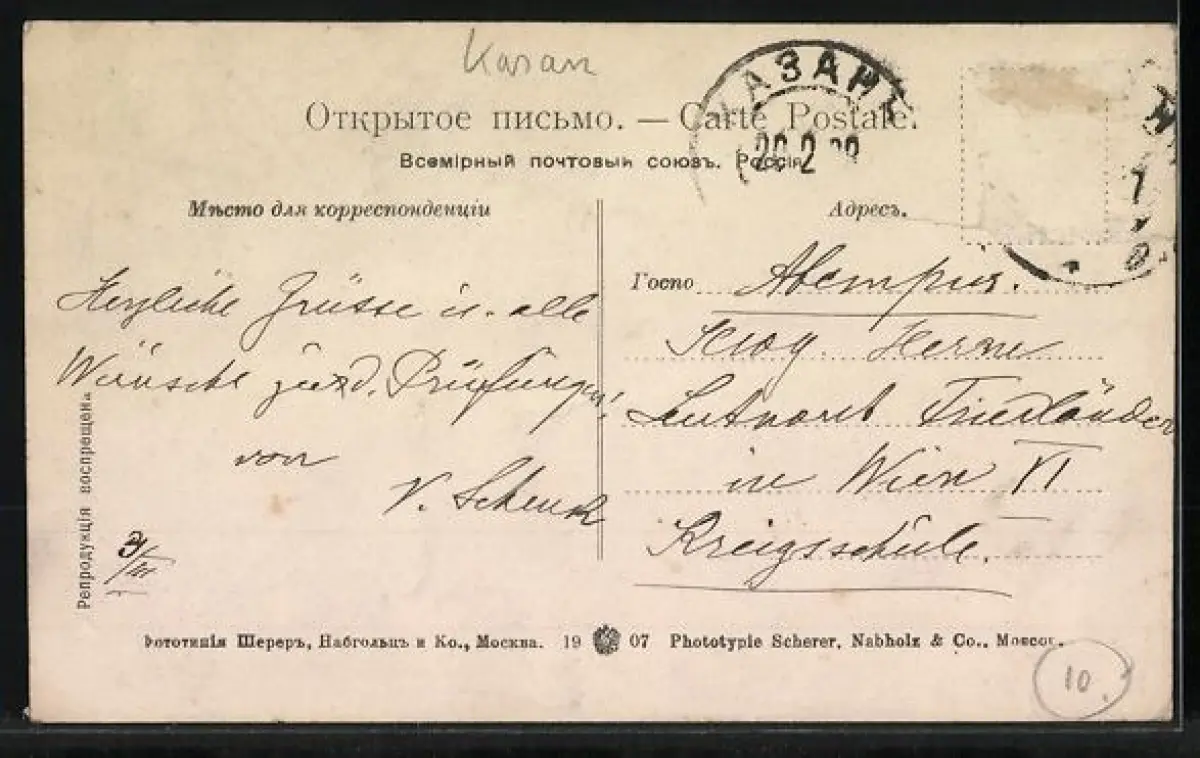 Kasan
КАЗАНЬ
Открытое письмо. — Carte Postale.
Всемірный почтовый союзъ. Россія
Мѣсто для корреспонденціи
Адресъ.
Herzliche Grüsse u. alle
Wünsche zur d. Prüfungen!
von
V. Schenk
3/III
Госпо
Seiner Herrn
Leutnant Friedländer
in Wien VI
Kreigsschule.
Репродукція воспрещена
Фототипія Шереръ, Набгольцъ и Ко., Москва. 19 07 Phototypie Scherer, Nabholz & Co., Moscou.
10